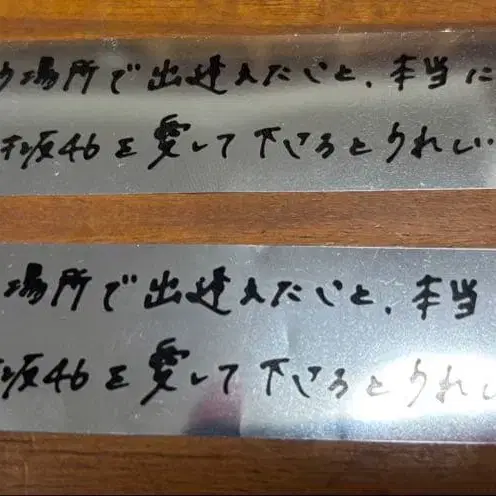 場所で出逢えたこと、本当に
坂46を愛して下さるとうれしい
場所で出逢えたこと、本当
坂46を愛して下さるとうれし